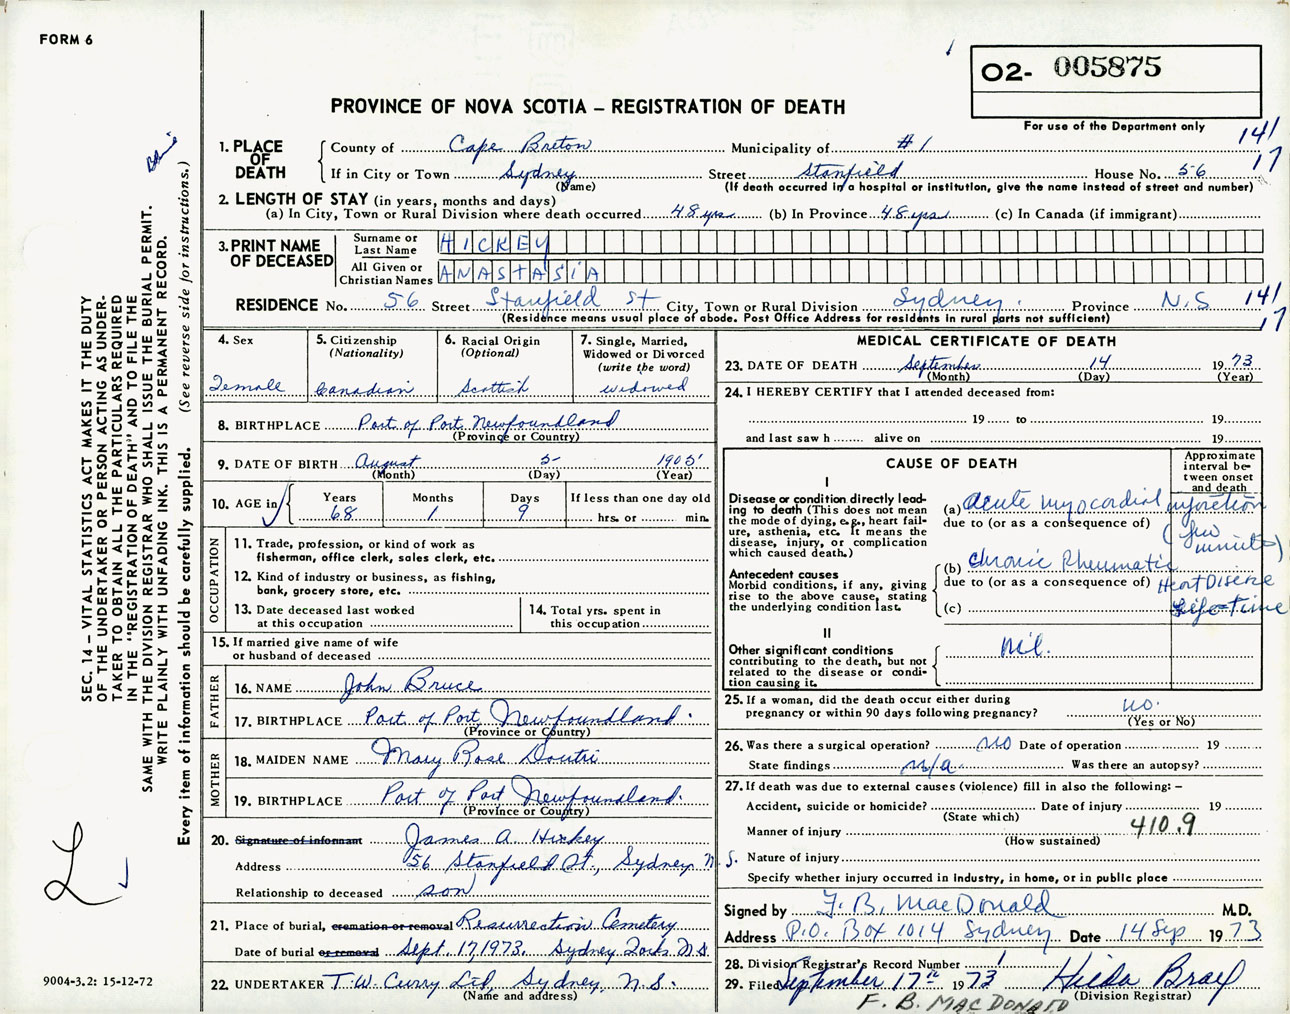 FORM 6
O2- 005875
PROVINCE OF NOVA SCOTIA – REGISTRATION OF DEATH
For use of the Department only
141
17
1. PLACE OF DEATH
County of Cape Breton Municipality of #1
If in City or Town Sydney Street Stanfield House No. 56
(Name) (If death occurred in a hospital or institution, give the name instead of street and number)
2. LENGTH OF STAY (in years, months and days)
(a) In City, Town or Rural Division where death occurred 48 yrs (b) In Province 48 yrs (c) In Canada (if immigrant)
3. PRINT NAME OF DECEASED
Surname or Last Name HICKEY
All Given or Christian Names ANASTASIA
RESIDENCE No. 56 Street Stanfield St City, Town or Rural Division Sydney. Province N.S 141
(Residence means usual place of abode. Post Office Address for residents in rural parts not sufficient) 17
4. Sex
Female
5. Citizenship
(Nationality)
Canadian
6. Racial Origin
(Optional)
Scottish
7. Single, Married,
Widowed or Divorced
(write the word)
widowed
8. BIRTHPLACE Port of Port, Newfoundland
(Province or Country)
9. DATE OF BIRTH August 5- 1905
(Month) (Day) (Year)
10. AGE in
Years Months Days If less than one day old
68 1 9 hrs. or min.
OCCUPATION
11. Trade, profession, or kind of work as
fisherman, office clerk, sales clerk, etc.
12. Kind of industry or business, as fishing,
bank, grocery store, etc.
13. Date deceased last worked
at this occupation
14. Total yrs. spent in
this occupation
15. If married give name of wife
or husband of deceased
FATHER
16. NAME John Bruce
17. BIRTHPLACE Port of Port Newfoundland.
(Province or Country)
MOTHER
18. MAIDEN NAME Mary Rose
19. BIRTHPLACE Port of Port Newfoundland.
(Province or Country)
20. Signature of informant James A. Hickey
Address 56 Stanfield St., Sydney N.S.
Relationship to deceased son
21. Place of burial, cremation or removal Resurrection Cemetery
Date of burial or removal Sept. 17, 1973. Sydney Forks N.S.
22. UNDERTAKER T.W. Curry Ltd, Sydney, N.S.
(Name and address)
MEDICAL CERTIFICATE OF DEATH
23. DATE OF DEATH September 14 1973
(Month) (Day) (Year)
24. I HEREBY CERTIFY that I attended deceased from:
19 to 19
and last saw h alive on 19
CAUSE OF DEATH
Approximate
interval be-
tween onset
and death
I
Disease or condition directly lead-
ing to death (This does not mean
the mode of dying, e.g., heart fail-
ure, asthenia, etc. It means the
disease, injury, or complication
which caused death.)
(a) Acute myocardial infarction
due to (or as a consequence of)
(few minutes)
Antecedent causes
Morbid conditions, if any, giving
rise to the above cause, stating
the underlying condition last.
(b) Chronic Rheumatic Heart Disease
due to (or as a consequence of)
(c) Life-Time
II
Other significant conditions
contributing to the death, but not
related to the disease or condi-
tion causing it.
nil.
25. If a woman, did the death occur either during
pregnancy or within 90 days following pregnancy? no.
(Yes or No)
26. Was there a surgical operation? no Date of operation 19
State findings n/a Was there an autopsy?
27. If death was due to external causes (violence) fill in also the following: –
Accident, suicide or homicide? Date of injury 19
(State which)
Manner of injury 410.9
(How sustained)
Nature of injury
Specify whether injury occurred in industry, in home, or in public place
Signed by F. B. MacDonald M.D.
Address P.O. Box 1014 Sydney Date 14 Sep 1973
28. Division Registrar's Record Number
29. Filed September 17th 1973 Hilda Bray
(Division Registrar)
F. B. MACDONALD
SEC. 14 – VITAL STATISTICS ACT MAKES IT THE DUTY
OF THE UNDERTAKER OR PERSON ACTING AS UNDER-
TAKER TO OBTAIN ALL THE PARTICULARS REQUIRED
IN THE "REGISTRATION OF DEATH" AND TO FILE THE
SAME WITH THE DIVISION REGISTRAR WHO SHALL ISSUE THE BURIAL PERMIT.
WRITE PLAINLY WITH UNFADING INK. THIS IS A PERMANENT RECORD.
Every item of information should be carefully supplied. (See reverse side for instructions.)
L
9004-3.2: 15-12-72